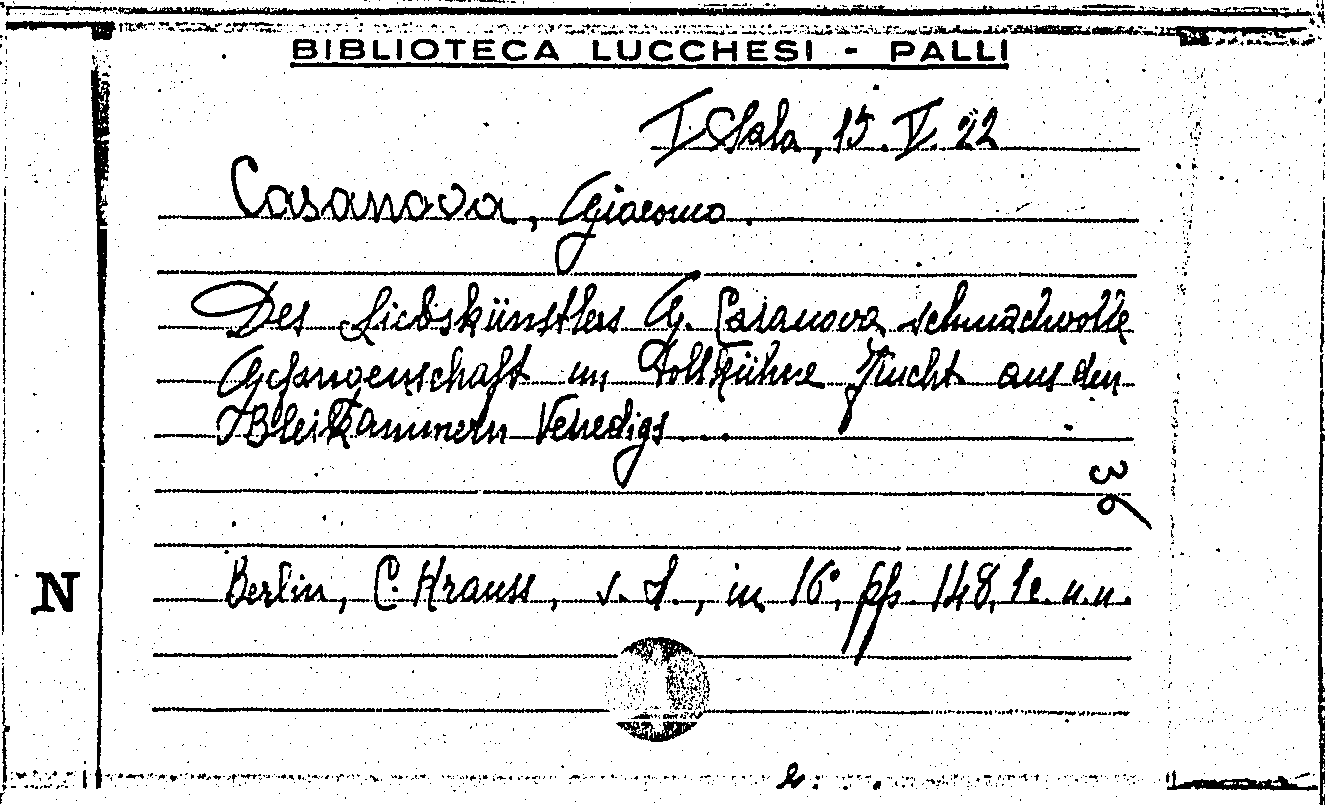 BIBLIOTECA LUCCHESI - PALLI
I Sala, 15. V. 22
Casanova, Giacomo.
Des Liebskünstlers G. Casanova schmachvolle
Gefangenschaft un Tollkühne Flucht aus den
Bleikammern Venedigs ...
36
Berlin, C. Krauss, s. d., in 16°, pp. 148, 1 c. n. n.
N